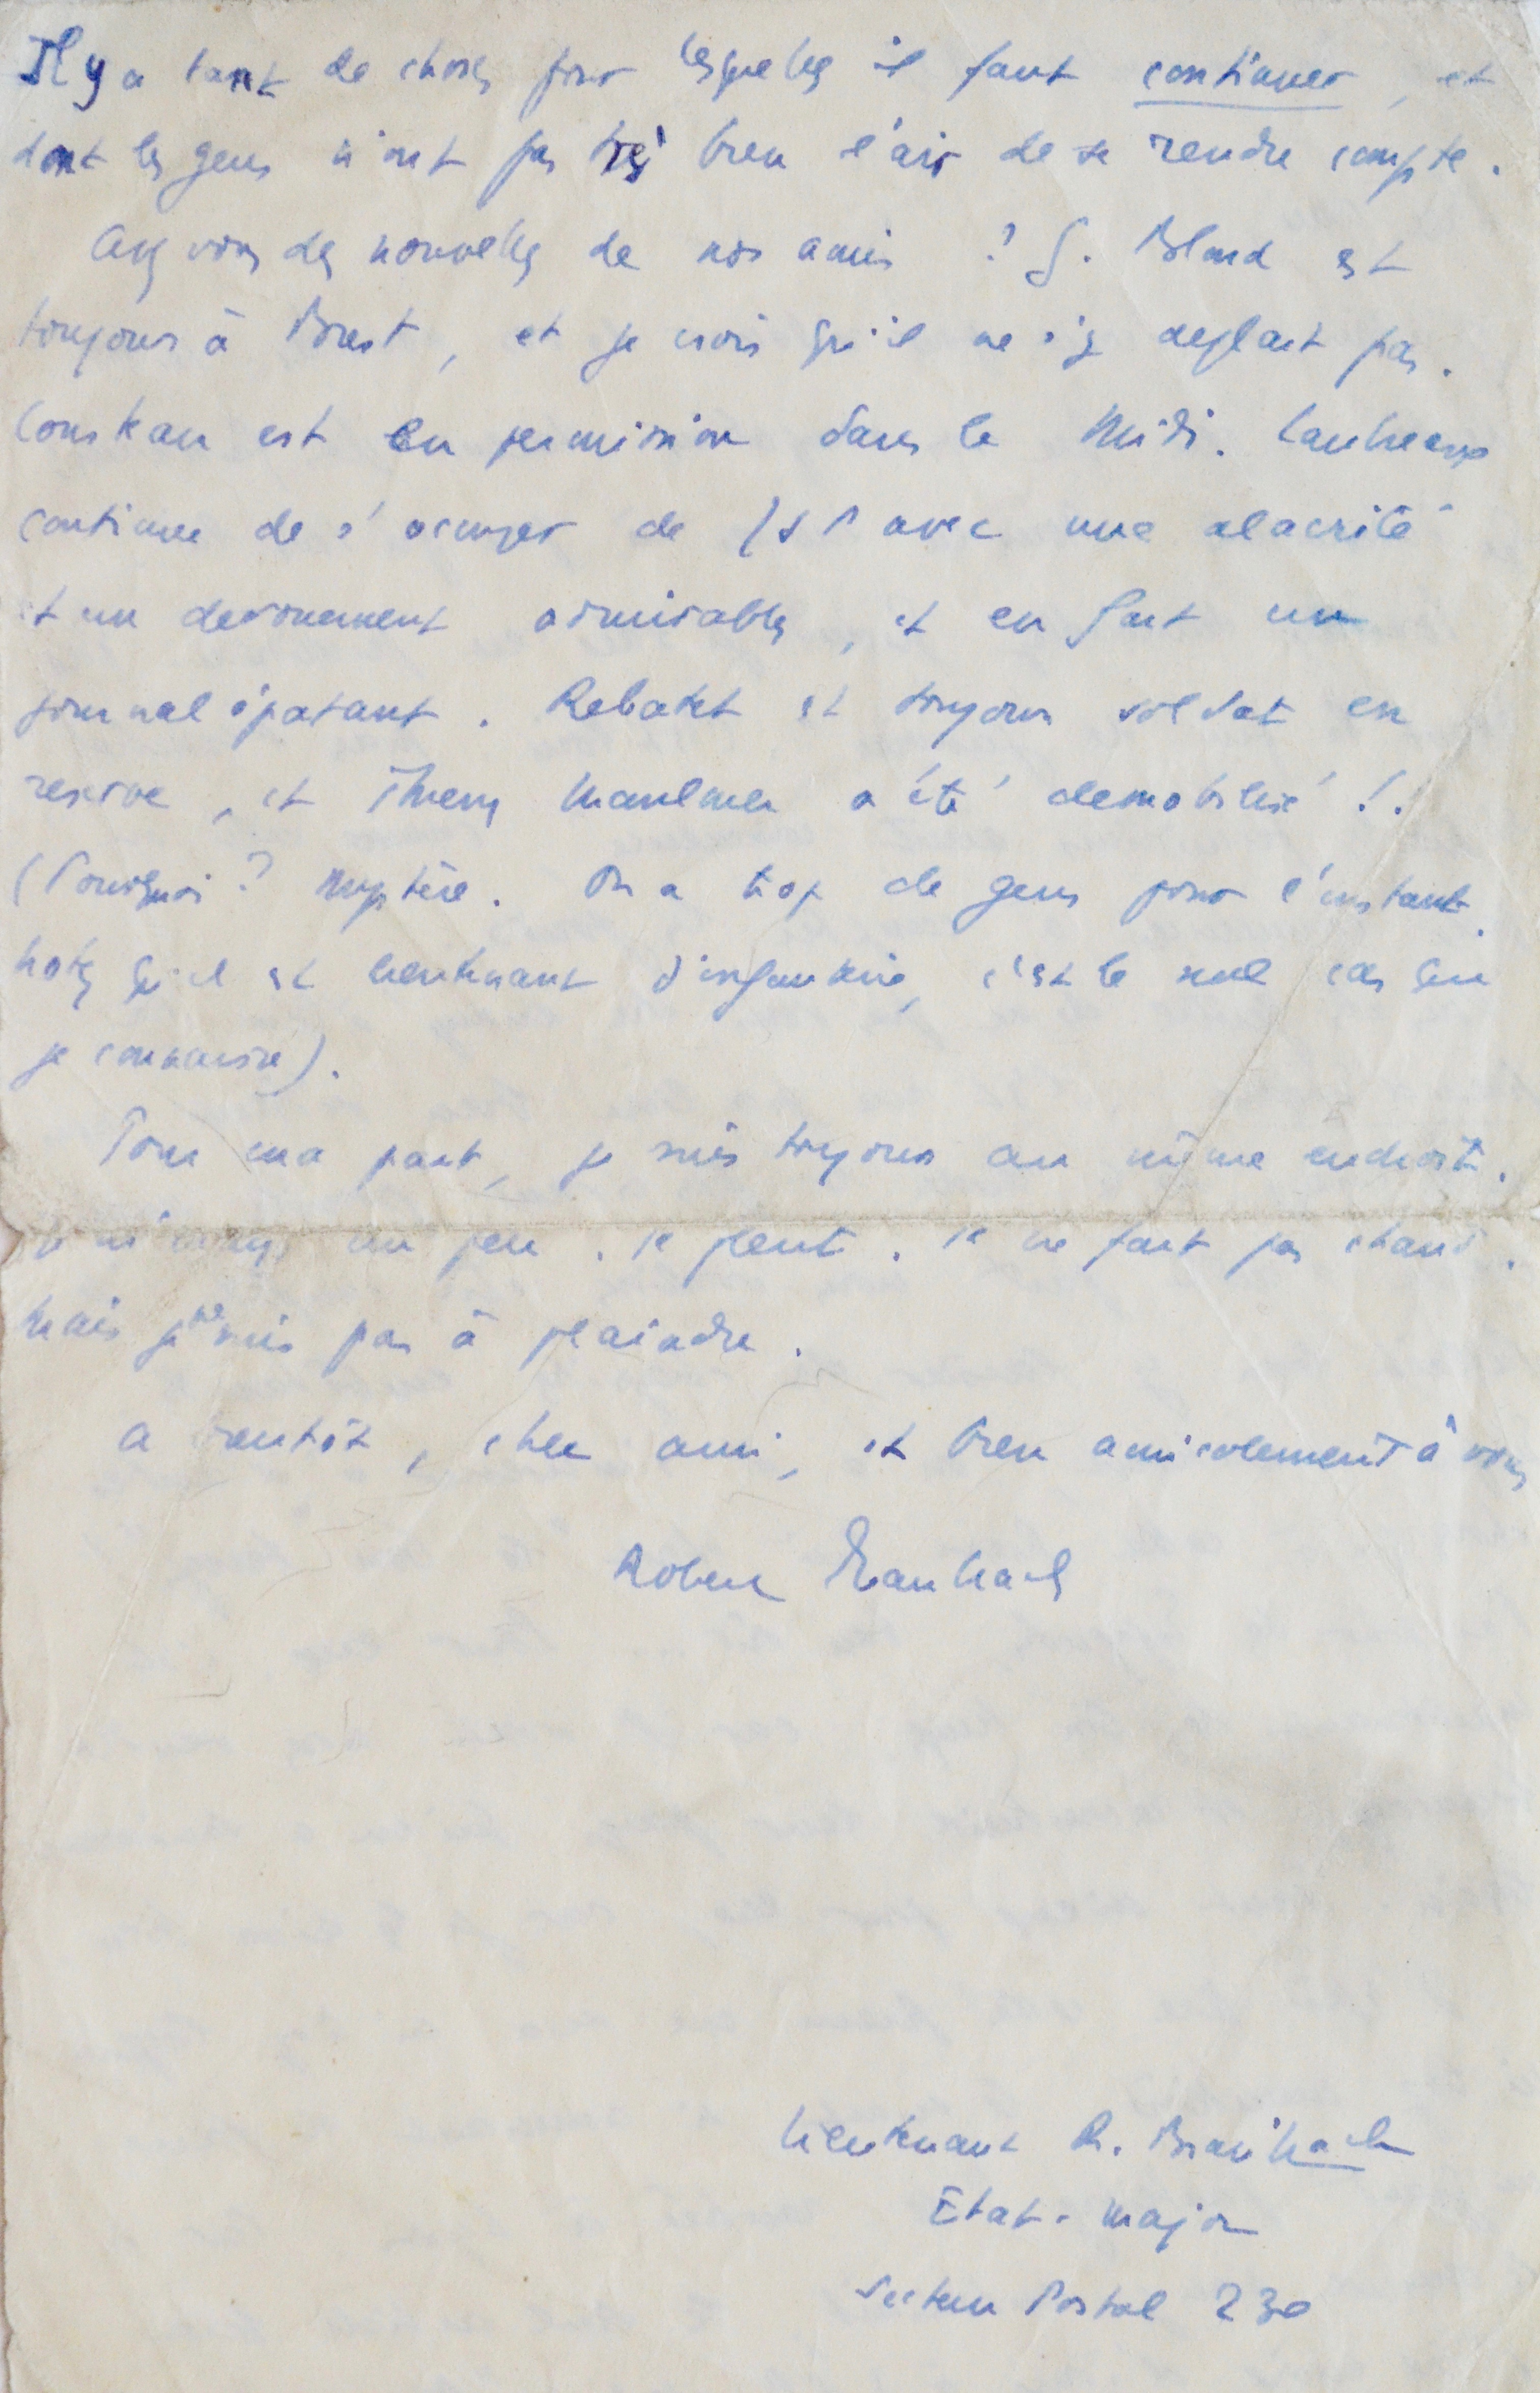 Il y a tant de choses pour lesquelles il faut continuer, et
dont les gens n'ont pas très bien l'air de se rendre compte.
Avez vous des nouvelles de nos amis ? G. Blond est
toujours à Brest, et je crois qu'il ne s'y deplait pas.
Cousteau est en permission dans le Midi. Lautreaux
continue de s'occuper de JSP avec une alacrité
et un devouement admirables, et en fait un
journal épatant. Rebatet est toujours soldat en
reserve, et Thierry Maulnier a été demobilisé !.
(Pourquoi ? Mystère. On a trop de gens pour l'instant.
Notez qu'il est lieutenant d'infanterie, c'est le seul cas que
je connaisse).
Pour ma part, je suis toujours au même endroit.
Je m'ennuye un peu. Il pleut. Il ne fait pas chaud.
Mais je ne suis pas à plaindre.
A bientôt, cher ami, et bien amicalement à vous
Robert Brasillach
Lieutenant R. Brasillach
Etat-Major
Secteur Postal 230